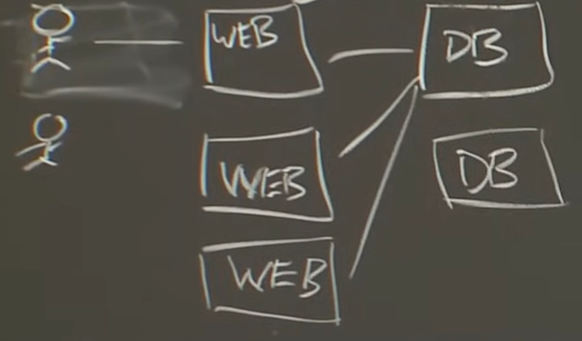 WEB
DB
WEB
DB
WEB